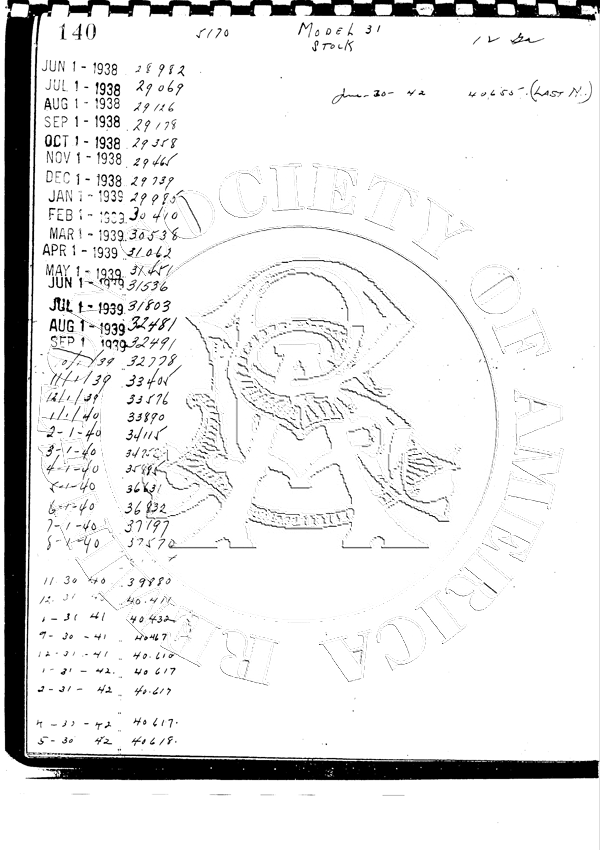 140 5170 MODEL 31 12 Ga
STOCK
JUN 1 - 1938 28982
JUL 1 - 1938 29069
June-30-42 40655.(LAST N.)
AUG 1 - 1938 29126
SEP 1 - 1938 29178
OCT 1 - 1938 29358
NOV 1 - 1938 29465
DEC 1 - 1938 29739
JAN 1 - 1939 29985
FEB 1 - 1939 30410
MAR 1 - 1939 30538
APR 1 - 1939 31062
MAY 1 - 1939 31451
JUN 1 - 1939 31536
JUL 1 - 1939 31803
AUG 1 - 1939 32481
SEP 1 - 1939 32491
/39 32778
11/1/39 33405
12/1/39 33576
1/1/40 33890
2-1-40 34115
3-1-40
4-1-40
5-1-40 36631
6-1-40 36832
7-1-40 37197
8-1-40 37570
11 30 40 39880
12 31
1-31 41 40432
9-30-41 40467
12-31-41 40.610
1-31-42 40617
3-31-42 40.617
4-30-42 40617.
5-30 42 40618.
SOCIETY OF AMERICA